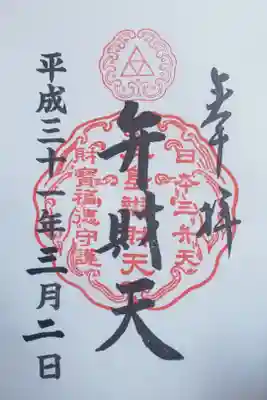 奉拝
日本三弁天
弁財天
辯財天
財寳福徳守護
平成三十一年三月二日